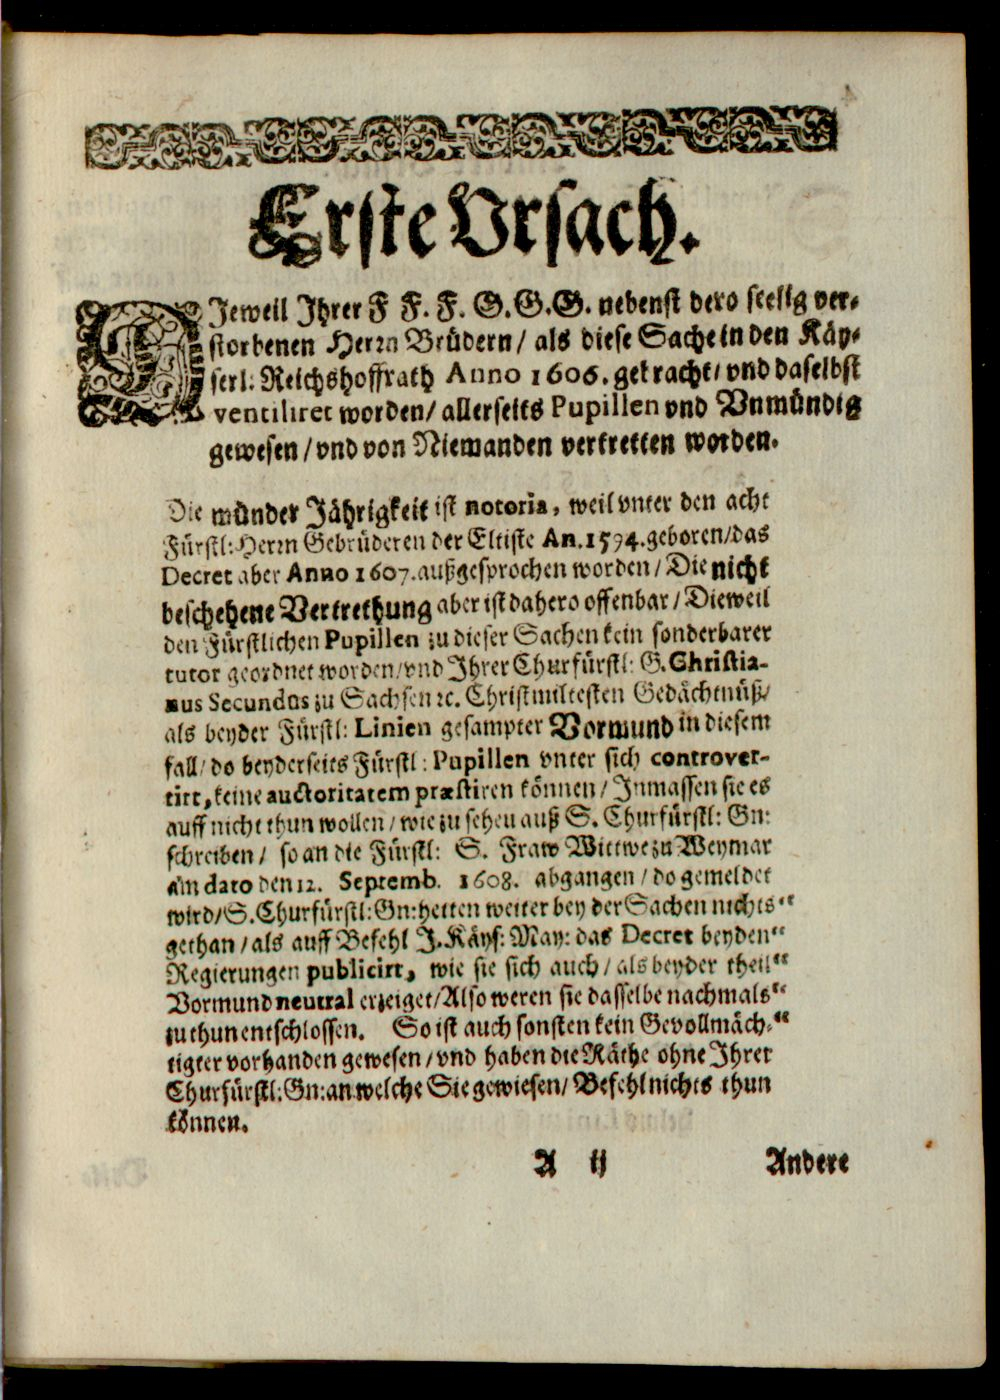 Erste Vrsach.
DJeweil Jhrer F F. F. G.G.G. nebenst dero seelig ver-
storbenen Herrn Brüdern/ als diese Sache in den Käy-
serl: Reichshoffrath Anno 1606. gebracht/ vnd daselbst
ventiliret worden/ allerseits Pupillen vnd Vnmündig
gewesen/ vnd von Niemanden vertretten worden.
Die münder Jährigkeit ist notoria, weil vnter den acht
Fürstl: Herrn Gebrüderen der Eltiste An. 1594. geboren/das
Decret aber Anno 1607. außgesprochen worden/ Die nicht
beschehene Vertrethung aber ist dahero offenbar/ Dieweil
den Fürstlichen Pupillen zu dieser Sachen kein sonderbarer
tutor geordnet worden/ vnd Jhrer Churfürstl: G. Christia-
nus Secundus zu Sachsen ꝛc. Christmiltesten Gedächtnüß/
als beyder Fürstl: Linien gesampter Vormund in diesem
fall/ do beyderseits Fürstl: Pupillen vnter sich controver-
tirt, keine auctoritatem præstiren können/ Jnmassen sie es
auff nicht thun wollen/ wie zu sehen auß S. Churfürstl: Gn:
schreiben/ so an die Fürstl: S. Fraw Wittwe zu Weymar
am dato den 12. Septemb. 1608. abgangen/ do gemeldet
wird/ S. Churfürstl: Gn: hetten weiter bey der Sachen nichts“
gethan/ als auff Befehl J. Käys: May: das Decret beyden“
Regierungen publicirt, wie sie sich auch/ als beyder theil“
Vormund neutral erzeiget/ Also weren sie dasselbe nachmals“
zu thun entschlossen. So ist auch sonsten kein Gevollmäch-“
tigter vorhanden gewesen/ vnd haben die Räthe ohne Jhrer
Churfürstl: Gn: an welche Sie gewiesen/ Befehl nichts thun
können.
A ij Andere